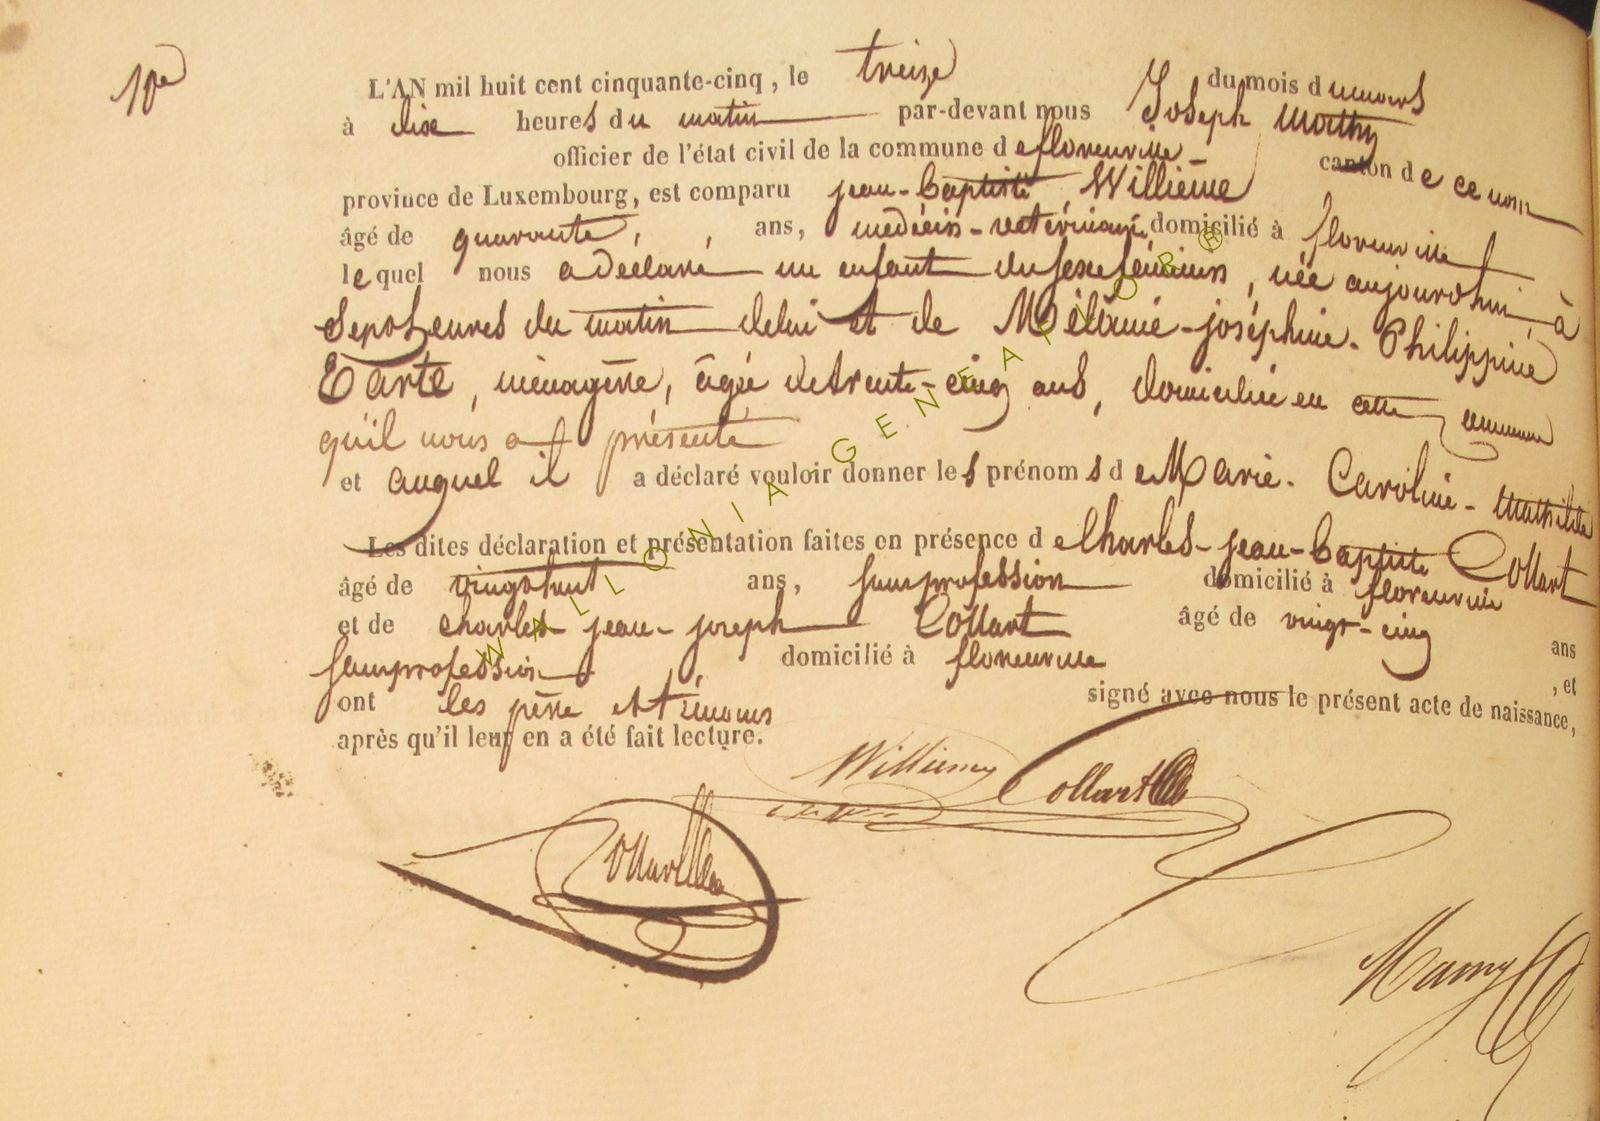 L'AN mil huit cent cinquante-cinq, le treize du mois de mars
à dix heures du matin par-devant nous Joseph Mathy
officier de l'état civil de la commune de florenville canton de ce nom
province de Luxembourg, est comparu jean-baptiste Willieme
âgé de quarante, ans, médécin-vetérinaire domicilié à florenville
lequel nous a déclaré un enfant du sexe féminin, née aujourdhui, à
sept heures du matin de lui et de Mélanie-joséphine-Philippine
Tarte, ménagère, âgée de trente-cinq ans, domiciliée en cette commune
qu'il nous a présenté
et auquel il a déclaré vouloir donner les prénoms de Marie-Caroline-Mathilde
Les dites déclaration et présentation faites en présence de Charles-jean-baptiste Collart
âgé de vingt huit ans, sans profession domicilié à florenville
et de charles-jean-joseph Collart âgé de vingt-cinq ans
sans profession domicilié à florenville, et
ont les père et témoins signé avec nous le présent acte de naissance,
après qu'il leur en a été fait lecture.
Willieme Collart
Collart
WALLONIA GENEALOGI®